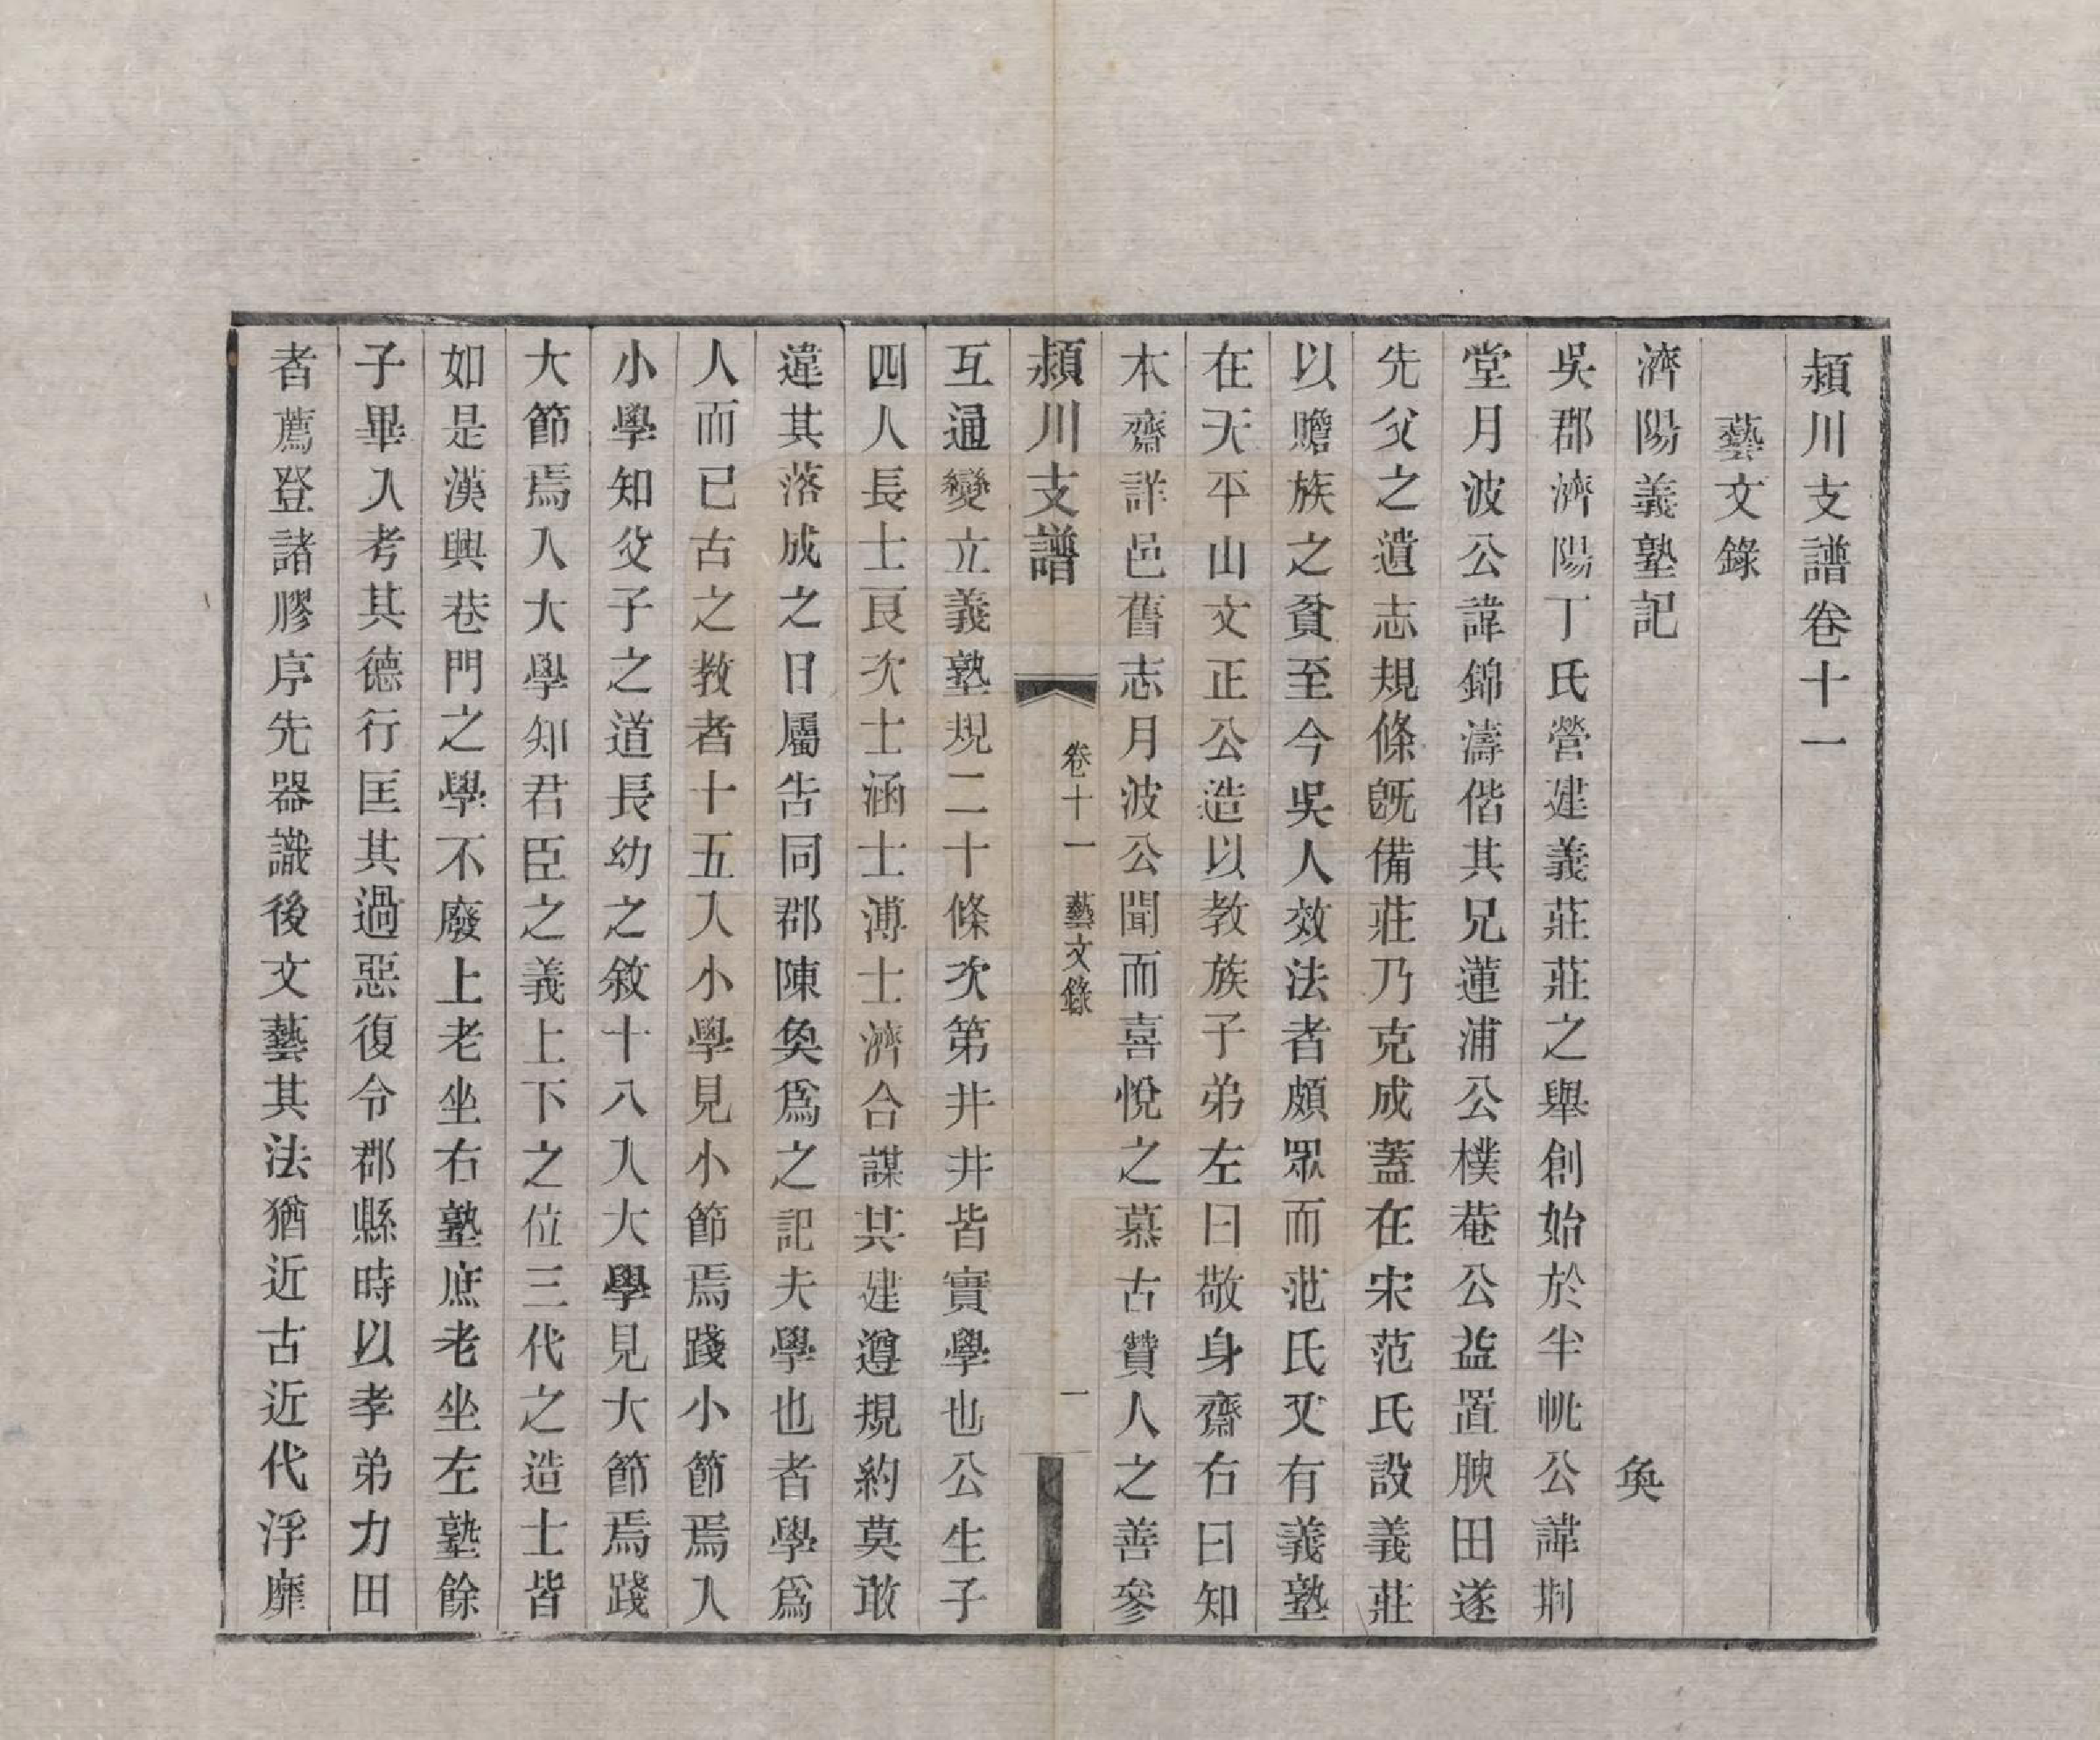 潁川支譜卷十一
藝文錄
濟陽義塾記 奐
吳郡濟陽丁氏營建義莊莊之舉創始於半帆公諱荆
堂月波公諱錦濤偕其兄蓮浦公樸菴公益置腴田遂
先父之遺志規條旣備莊乃克成蓋在宋范氏設義莊
以贍族之貧至今吳人效法者頗眾而范氏又有義塾
在天平山文正公造以教族子弟左曰敬身齋右曰知
本齋詳邑舊志月波公聞而喜悅之慕古贊人之善參
潁川支譜 卷十一 藝文錄 一
互通變立義塾規二十條次第井井皆實學也公生子
四人長士良次士涵士溥士濟合謀其建遵規約莫敢
違其落成之日屬吿同郡陳奐爲之記夫學也者學爲
人而已古之教者十五入小學見小節焉踐小節焉入
小學知父子之道長幼之敘十八入大學見大節焉踐
大節焉入大學知君臣之義上下之位三代之造士皆
如是漢興巷門之學不廢上老坐右塾庶老坐左塾餘
子畢入考其德行匡其過惡復令郡縣時以孝弟力田
者薦登諸膠庠先器識後文藝其法猶近古近代浮靡